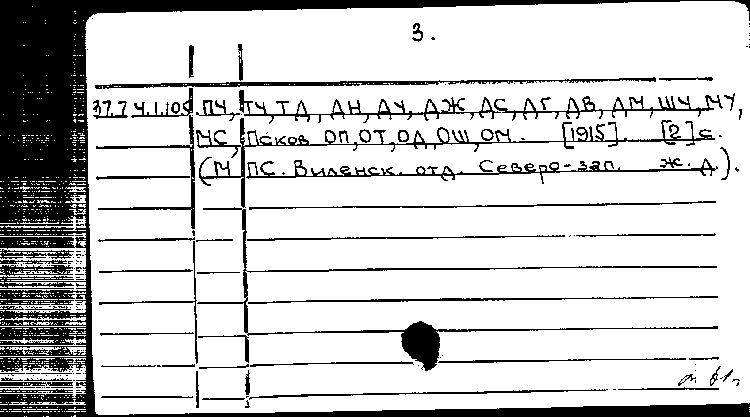 3.
37.7.4.1.109. ПЧ, ТЧ, ТД, ДН, ДУ, ДЖ, ДС, ДГ, ДВ, ДМ, ШЧ, МЧ,
МС, Псков ОП, ОТ, ОД, ОШ, ОМ. [1915]. [2] с.
(М ПС. Виленск. отд. Северо-зап. ж. д.).